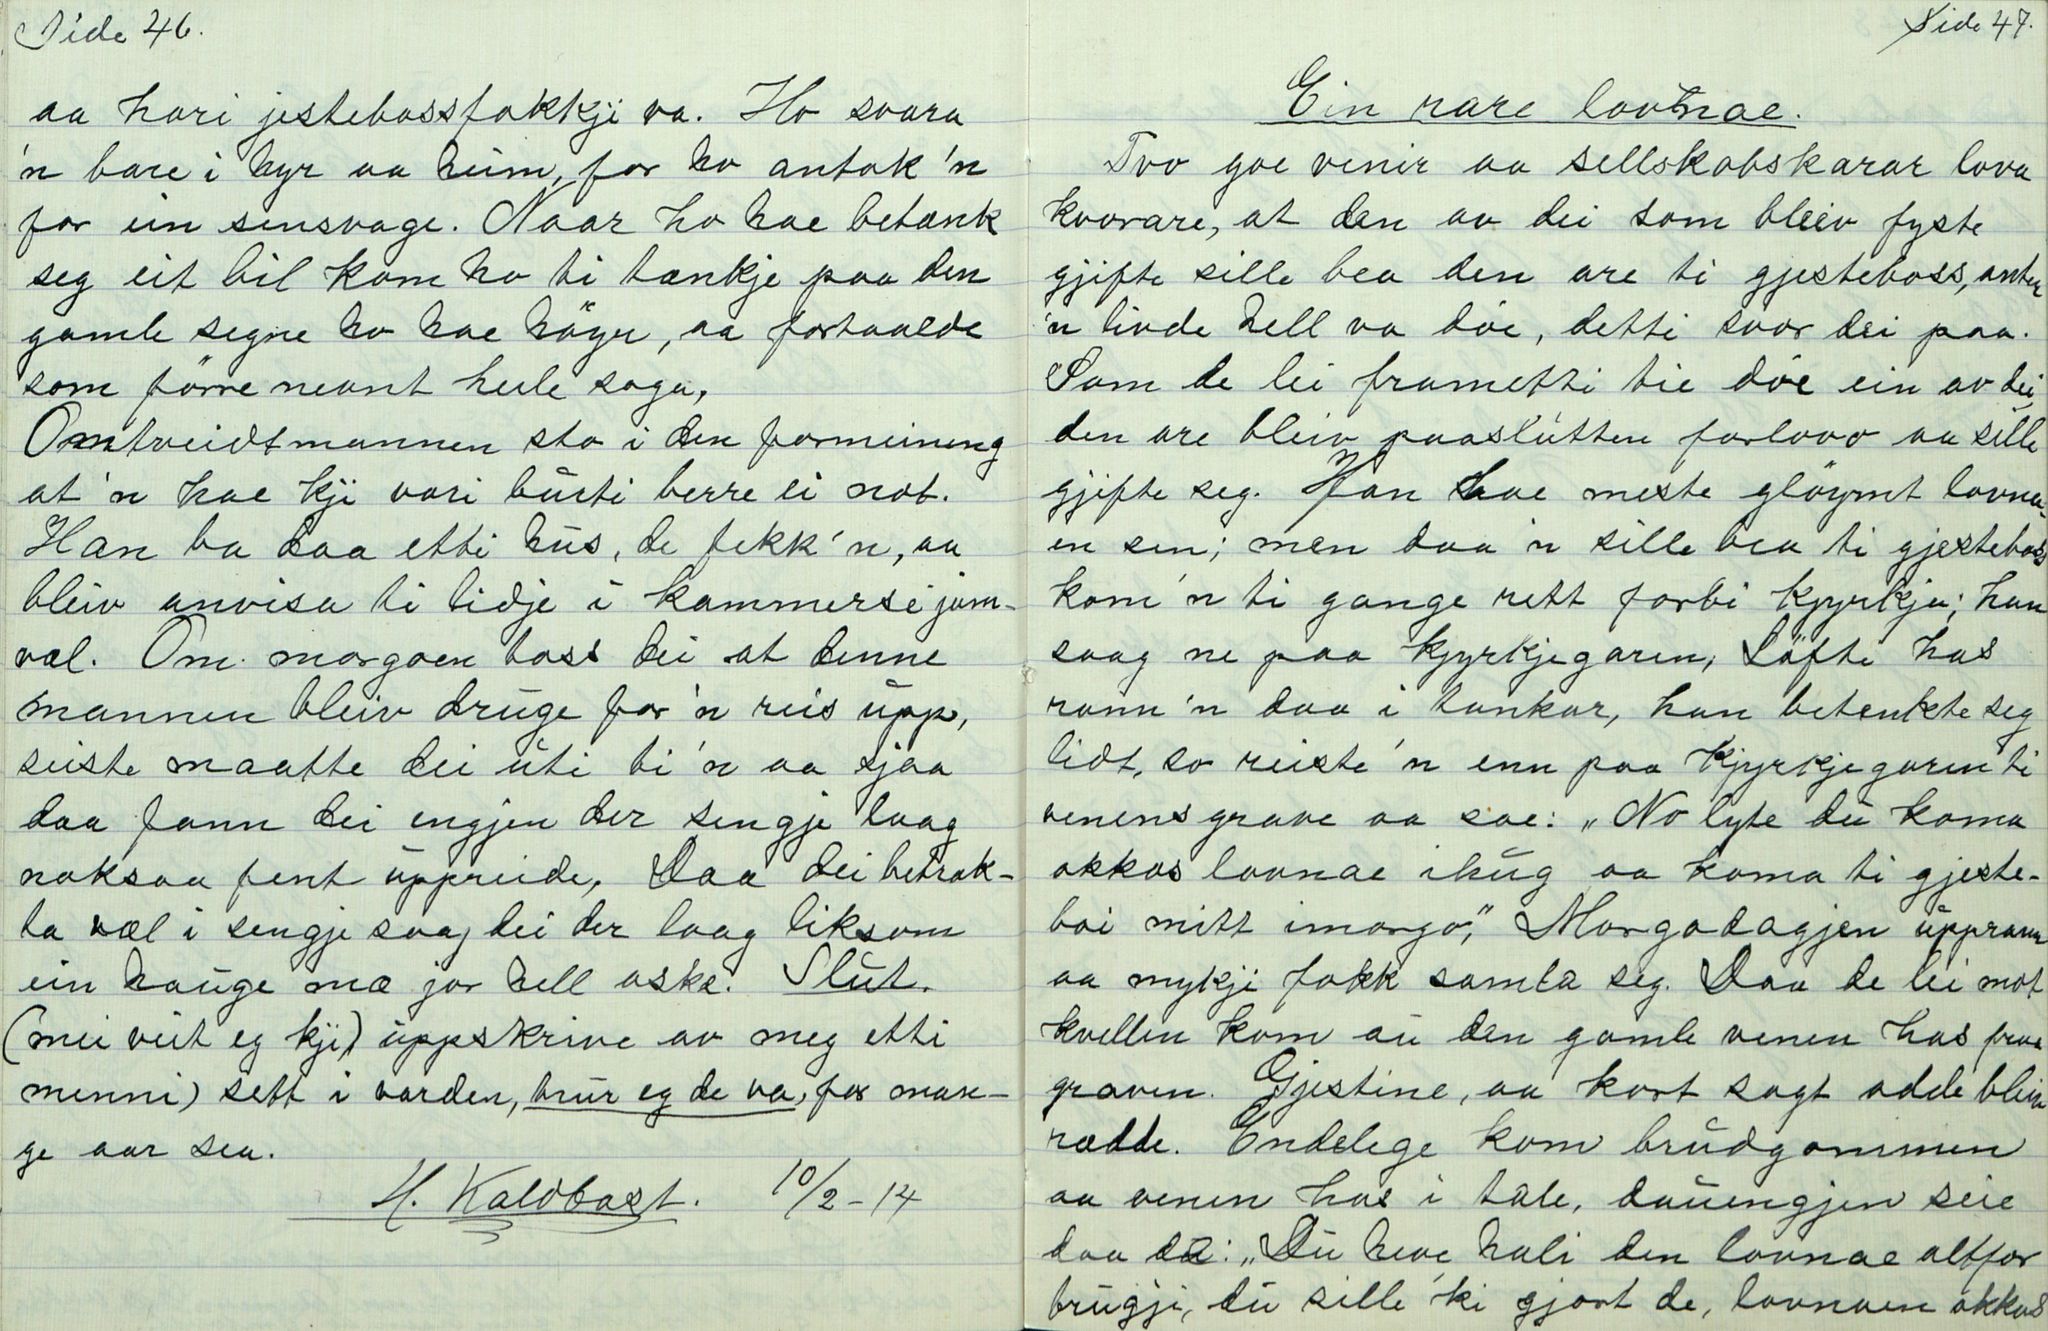 Side 46.
aa hori jestebossfokkji va. Ho svara
'n bare i hyr aa heim, for ho antok 'n
for ein sensvage. Naar ho hae betænk
seg eit bil kom ho ti tænkje paa den
gamle segne ho hae höyr, aa fortaalde
som förre neant heile soga,
Omtveidtmannen sto i den formeining
at 'n hae kji vori burti berre ei not.
Han ba daa etti hus, de fekk 'n, aa
bleiv anvisa ti lidje i kammerse jam-
væl. Om morgoen toss dei at denne
mannen bleiv druge for 'n reis upp,
seiste maatte dei uti ti 'n aa sjaa
daa fann dei engjen der sengje laag
noksaa fent uppreide, Daa dei betrak-
ta væl i sengje saag dei der laag liksom
ein hauge mæ jor hell oske. Slut.
(mei veit eg kji) uppskrive av meg etti
menni) sett i vorden, trur eg de va, for man-
ge aar sea.
H. Kaldbast. 10/2-14
Side 47.
Ein rare lovnae.
Tvo goe venir aa sellskobskarar lova
kvorare, at den av dei som bleiv fyste
gjifte sille bea den are ti gjesteboss, anten
'n livde hell va döe, detti svor dei paa.
Som de lei frametti tie döe ein av dei,
den are bleiv paaslutten forlovo aa sille
gjifte seg. Han hae meste glöymt lovna-
en sin; men daa 'n sille bea ti gjesteboss
kom 'n ti gange rett forbi kjyrkja; han
saag ne paa kjyrkjegaren, Löfte has
rann 'n daa i tankar, han betenkte seg
lidt, so reiste 'n enn paa kjyrkjegaren ti
venens grave aa sae: „No lyte du koma
okkos lovnae ihug aa koma ti gjeste-
boi mitt imorgo," Morgodagjen upprann
aa mykji fokk samla seg. Daa de lei mot
kvellen kom au den gamle venen has fraa
graven. Gjestine, aa kort sagt adde bleiv
rædde. Endelege kom brudgommen
aa venen has i tale, dauengjen seie
daa da: „Du heve hali den lovnae altfor
trugji, du sille 'ki gjort de, lovnaen okkos